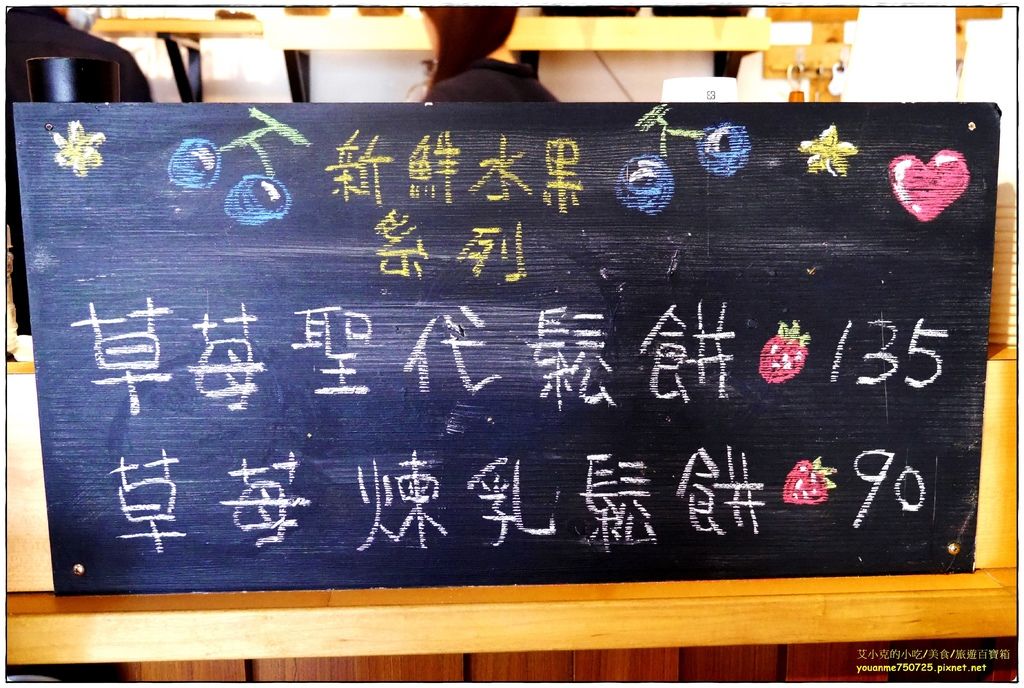 新鮮水果
系列
草莓聖代鬆餅 135
草莓煉乳鬆餅 90
艾小克的小吃/美食/旅遊百寶箱
youanme750725.pixnet.net